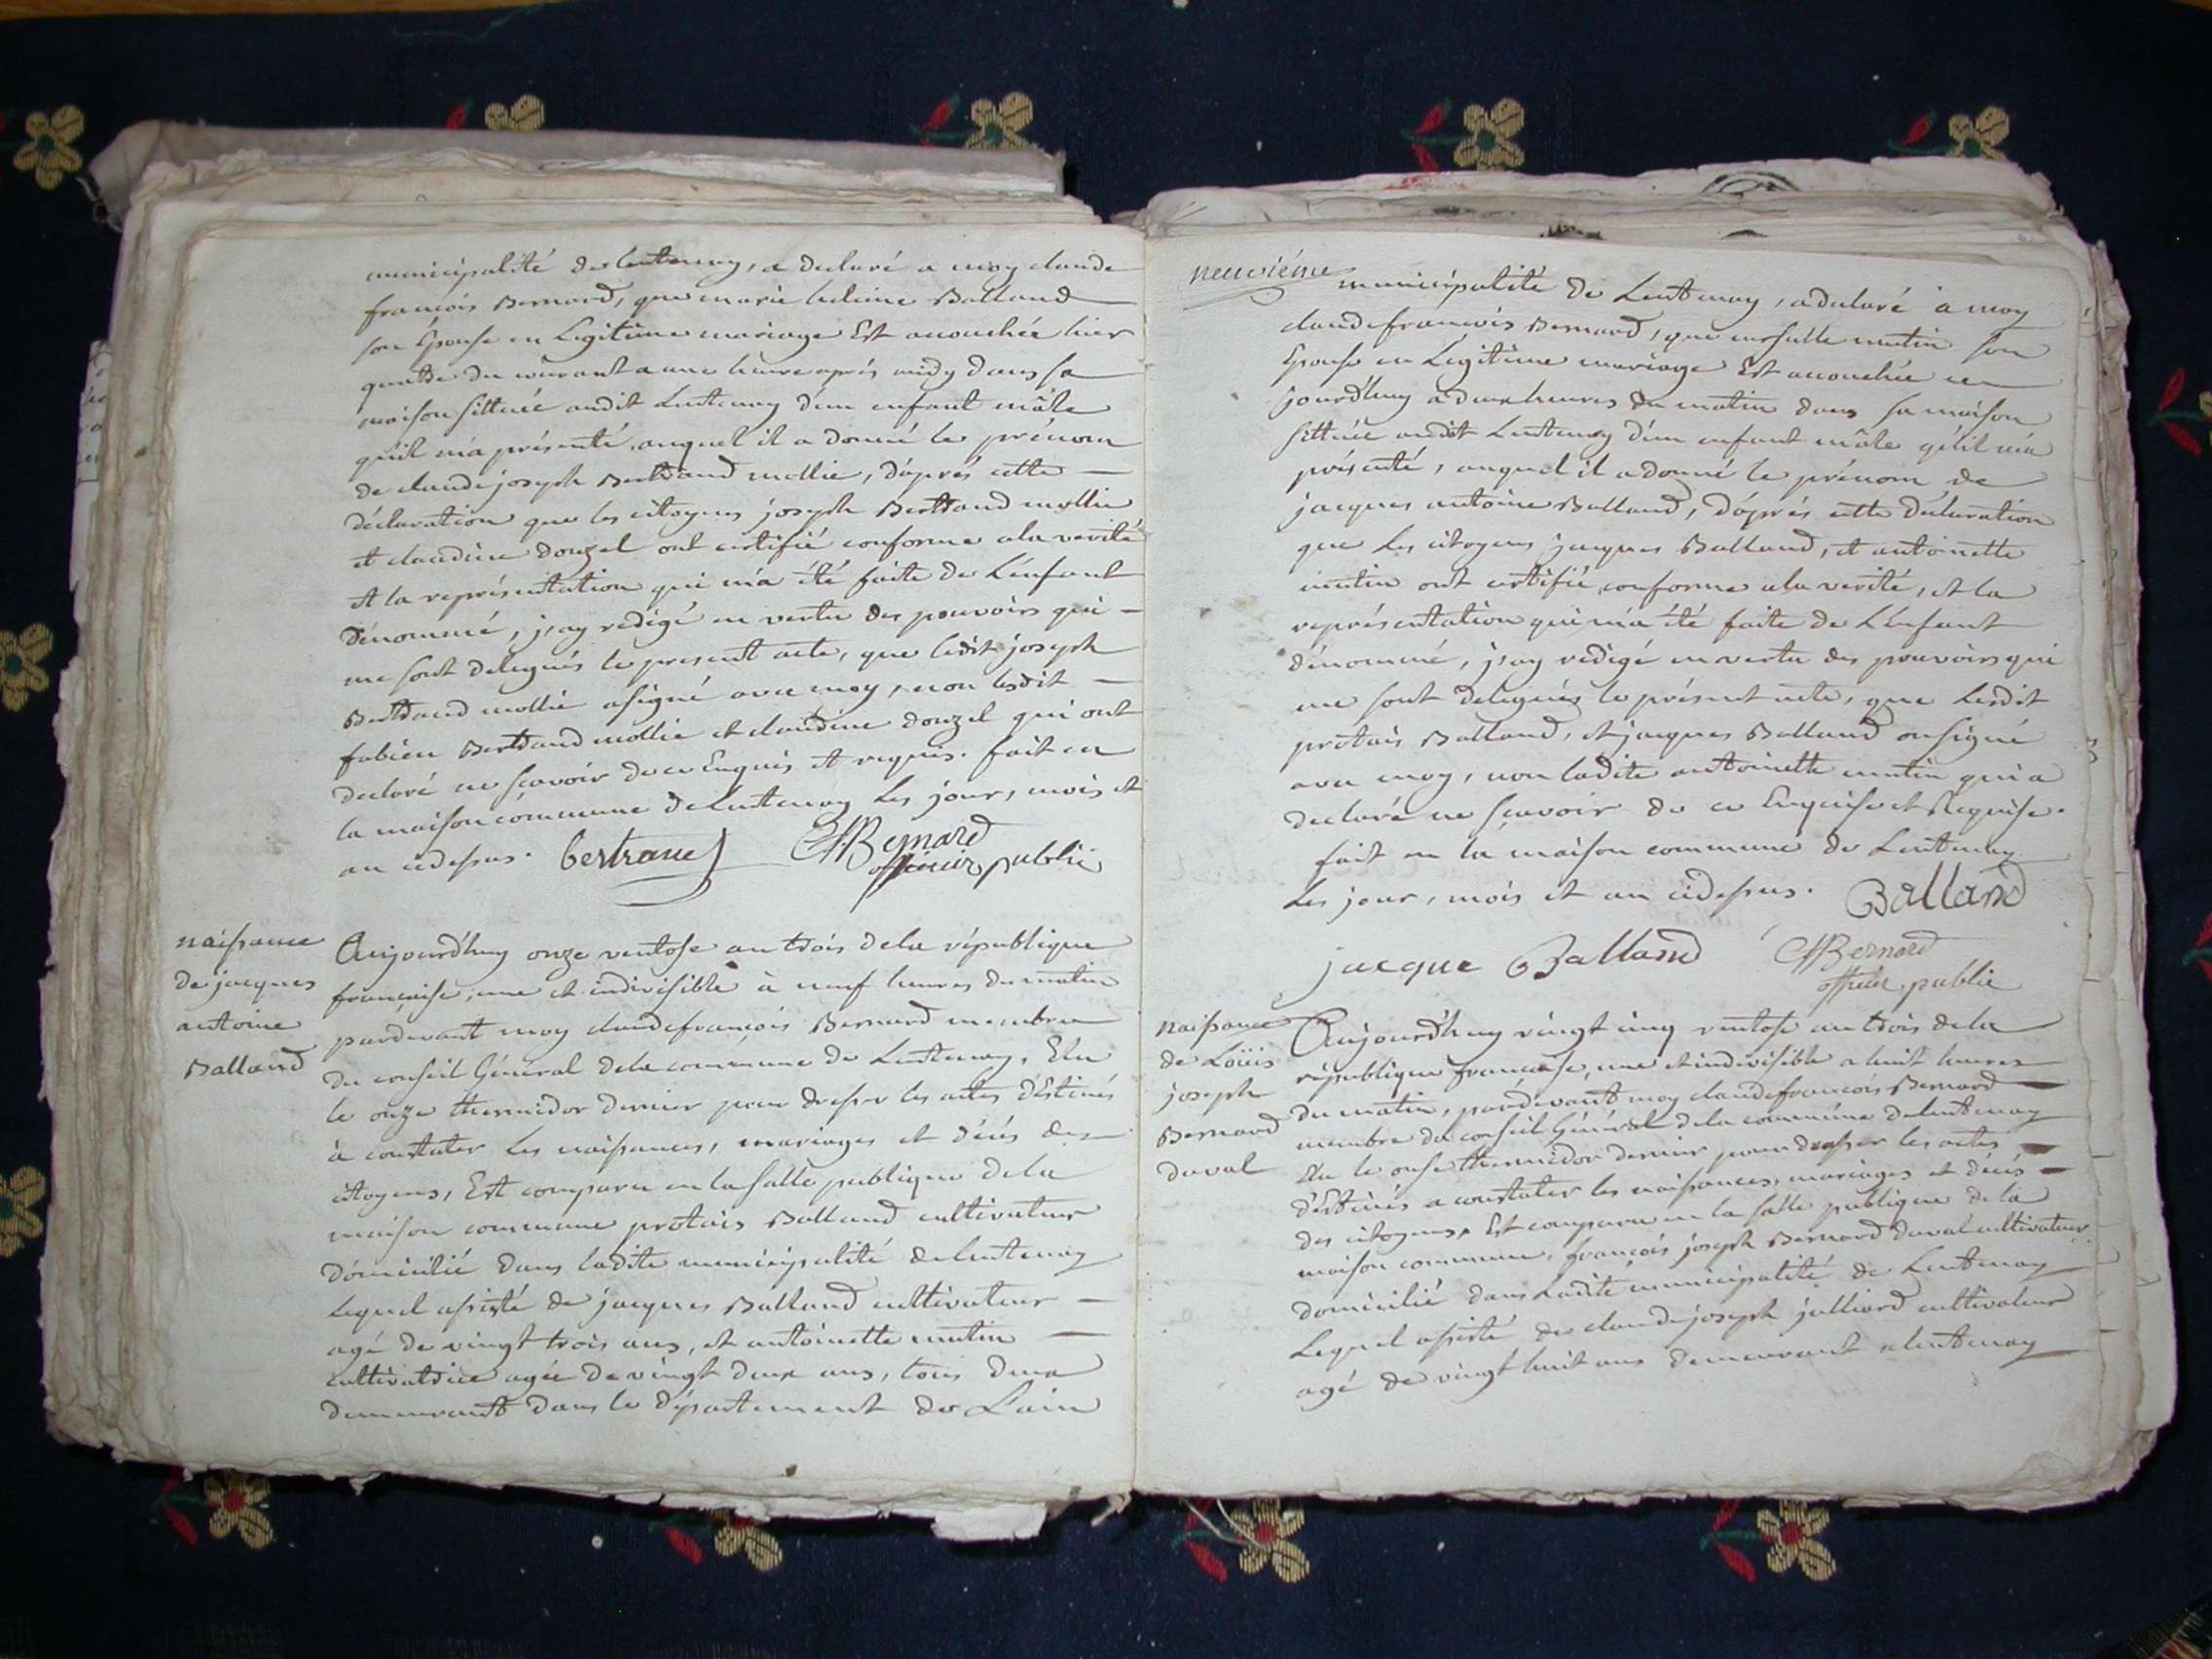 municipalité de lentenay, a declaré a moy claude
françois Bernard, que marie heleine Balland
son Épouse en Légitime mariage Est accouchée hier
quatre du courant a une heure aprés midy dans sa
maison sittuée audit Lentenay d'un enfant mâle
qu'il m'a présenté, auquel il a donné le prénom
de claude joseph Bertrand mollie, d'aprés cette
déclaration que les citoyens joseph Bertrand mollie
et claudine douzel ont certifié conforme a la verité
Et la représentation qui m'a été faite de L'enfant
dénommé, j'ay redigé en vertu des pouvoirs qui
me sont delegués le present acte, que ledit joseph
Bertrand mollie a signé avec moy, non lesdit
fabien Bertrand mollie et claudine douzel qui ont
declaré ne sçavoir de ce Enquis et requis. fait en
la maison commune de Lentenay Les jour, mois et
an cidessus. bertrand CfBernard
officier public
naissance
de jacques
antoine
Balland
Aujourd'huy onze ventose an trois de la république
française, une et indivisible à neuf heures du matin
pardevant moy claude françois Bernard membre
du conseil Général de la commune de Lentenay, Elu
le onze thermidor dernier pour dresser les actes d'Estinés
à constater Les naissances, mariages et décés des
citoyens, Est comparu en la salle publique de la
maison commune protais Balland cultivateur
domicilié dans ladite municipalité de lentenay
Lequel assisté de jacques Balland cultivateur
agé de vingt trois ans, et antoinette mutin
cultivatrice agée de vingt deux ans, tous deux
demeurants dans le département de L'ain
neuviéme
municipalité de Lentenay, a declaré à moy
claude françois Bernard, que mutin son
Epouse en Légitime mariage Est accouchée ce
jourd'huy a deux heures du matin dans sa maison
sittuée audit Lentenay d'un enfant mâle qu'il m'a
présenté, auquel il a donné le prénom de
jacques antoine Balland, d'aprés cette déclaration
que Les citoyens jacques Balland, et antoinette
mutin ont certifié conforme a la verité, et la
représentation qui m'a été faite de L'enfant
dénommé, j'ay redigé en vertu des pouvoirs qui
me sont delegués le présent acte, que Lesdit
protais Balland, et jacques Balland on signé
avec moy, non ladite antoinette mutin qui a
declaré ne sçavoir de ce Enquise et Requise.
fait en la maison commune de Lentenay
Les jour, mois et an cidessus. Balland
jacque Balland CfBernard
officier public
naissance
de Loüis
joseph
Bernard
duval
Aujourd'huy vingt cinq ventose an trois de la
république française, une et indivisible a huit heures
du matin, pardevant moy claude francois Bernard
membre du conseil Général de la commune de lentenay
élu le onse thermidor dernier pour dresser les actes
d'Estinés a constater les naissances, mariages et décés
des citoyens, Est comparu en la salle publique de la
maison commune, françois joseph Bernard duval cultivateur
domicilié dans Ladite municipalité de Lentenay
Lequel assisté de claude joseph julliard cultivateur
agé de vingt huit ans demeurant a lentenay